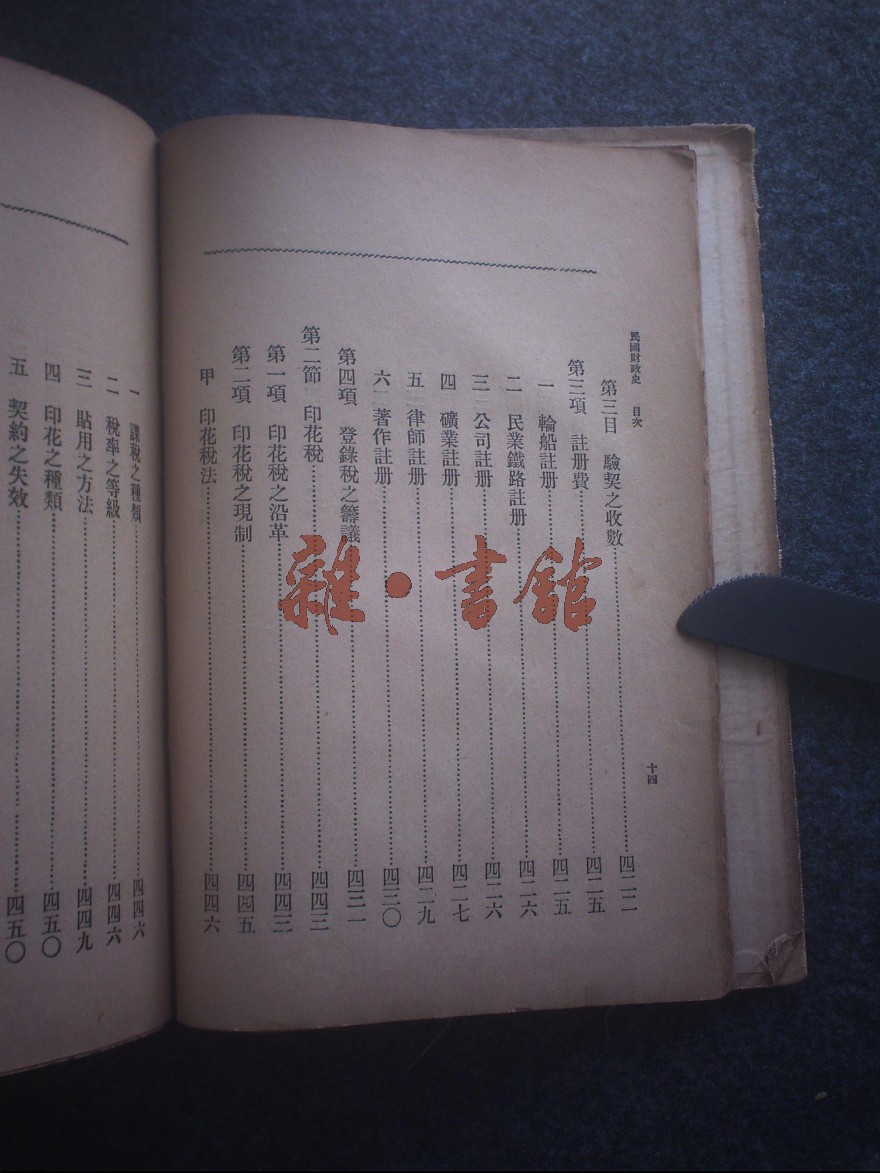 民國財政史 目次
十四
第三目 驗契之收數…………四二二
第三項 註册費…………四二五
一 輪船註册…………四二五
二 民業鐵路註册…………四二六
三 公司註册…………四二六
四 礦業註册…………四二七
五 律師註册…………四二九
六 著作註册…………四三〇
第四項 登錄稅之籌議…………四三一
第二節 印花稅…………四四三
第一項 印花稅之沿革…………四四三
第二項 印花稅之現制…………四四五
甲 印花稅法…………四四六
一 課稅之種類…………四四六
二 稅率之等級…………四四六
三 貼用之方法…………四四九
四 印花之種類…………四五〇
五 契約之失效…………四五〇
雜·書館